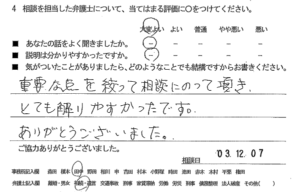 4 相談を担当した弁護士について、当てはまる評価に○をつけてください。
大変よい よい 普通 やや悪い 悪い
■ あなたの話をよく聞きましたか。 - - - - -
■ 説明は分かりやすかったですか。 - - - - -
■ 気がついたことがありましたら、どのようなことでも結構ですからお書きください。
重要な点を絞って相談にのって頂き、
とても解りやすかったです。
ありがとうございました。
ご協力ありがとうございました。
相談日
'03.12.07
事務局記入欄
弁護士記入欄 離婚・男女 相続・遺言 交通事故